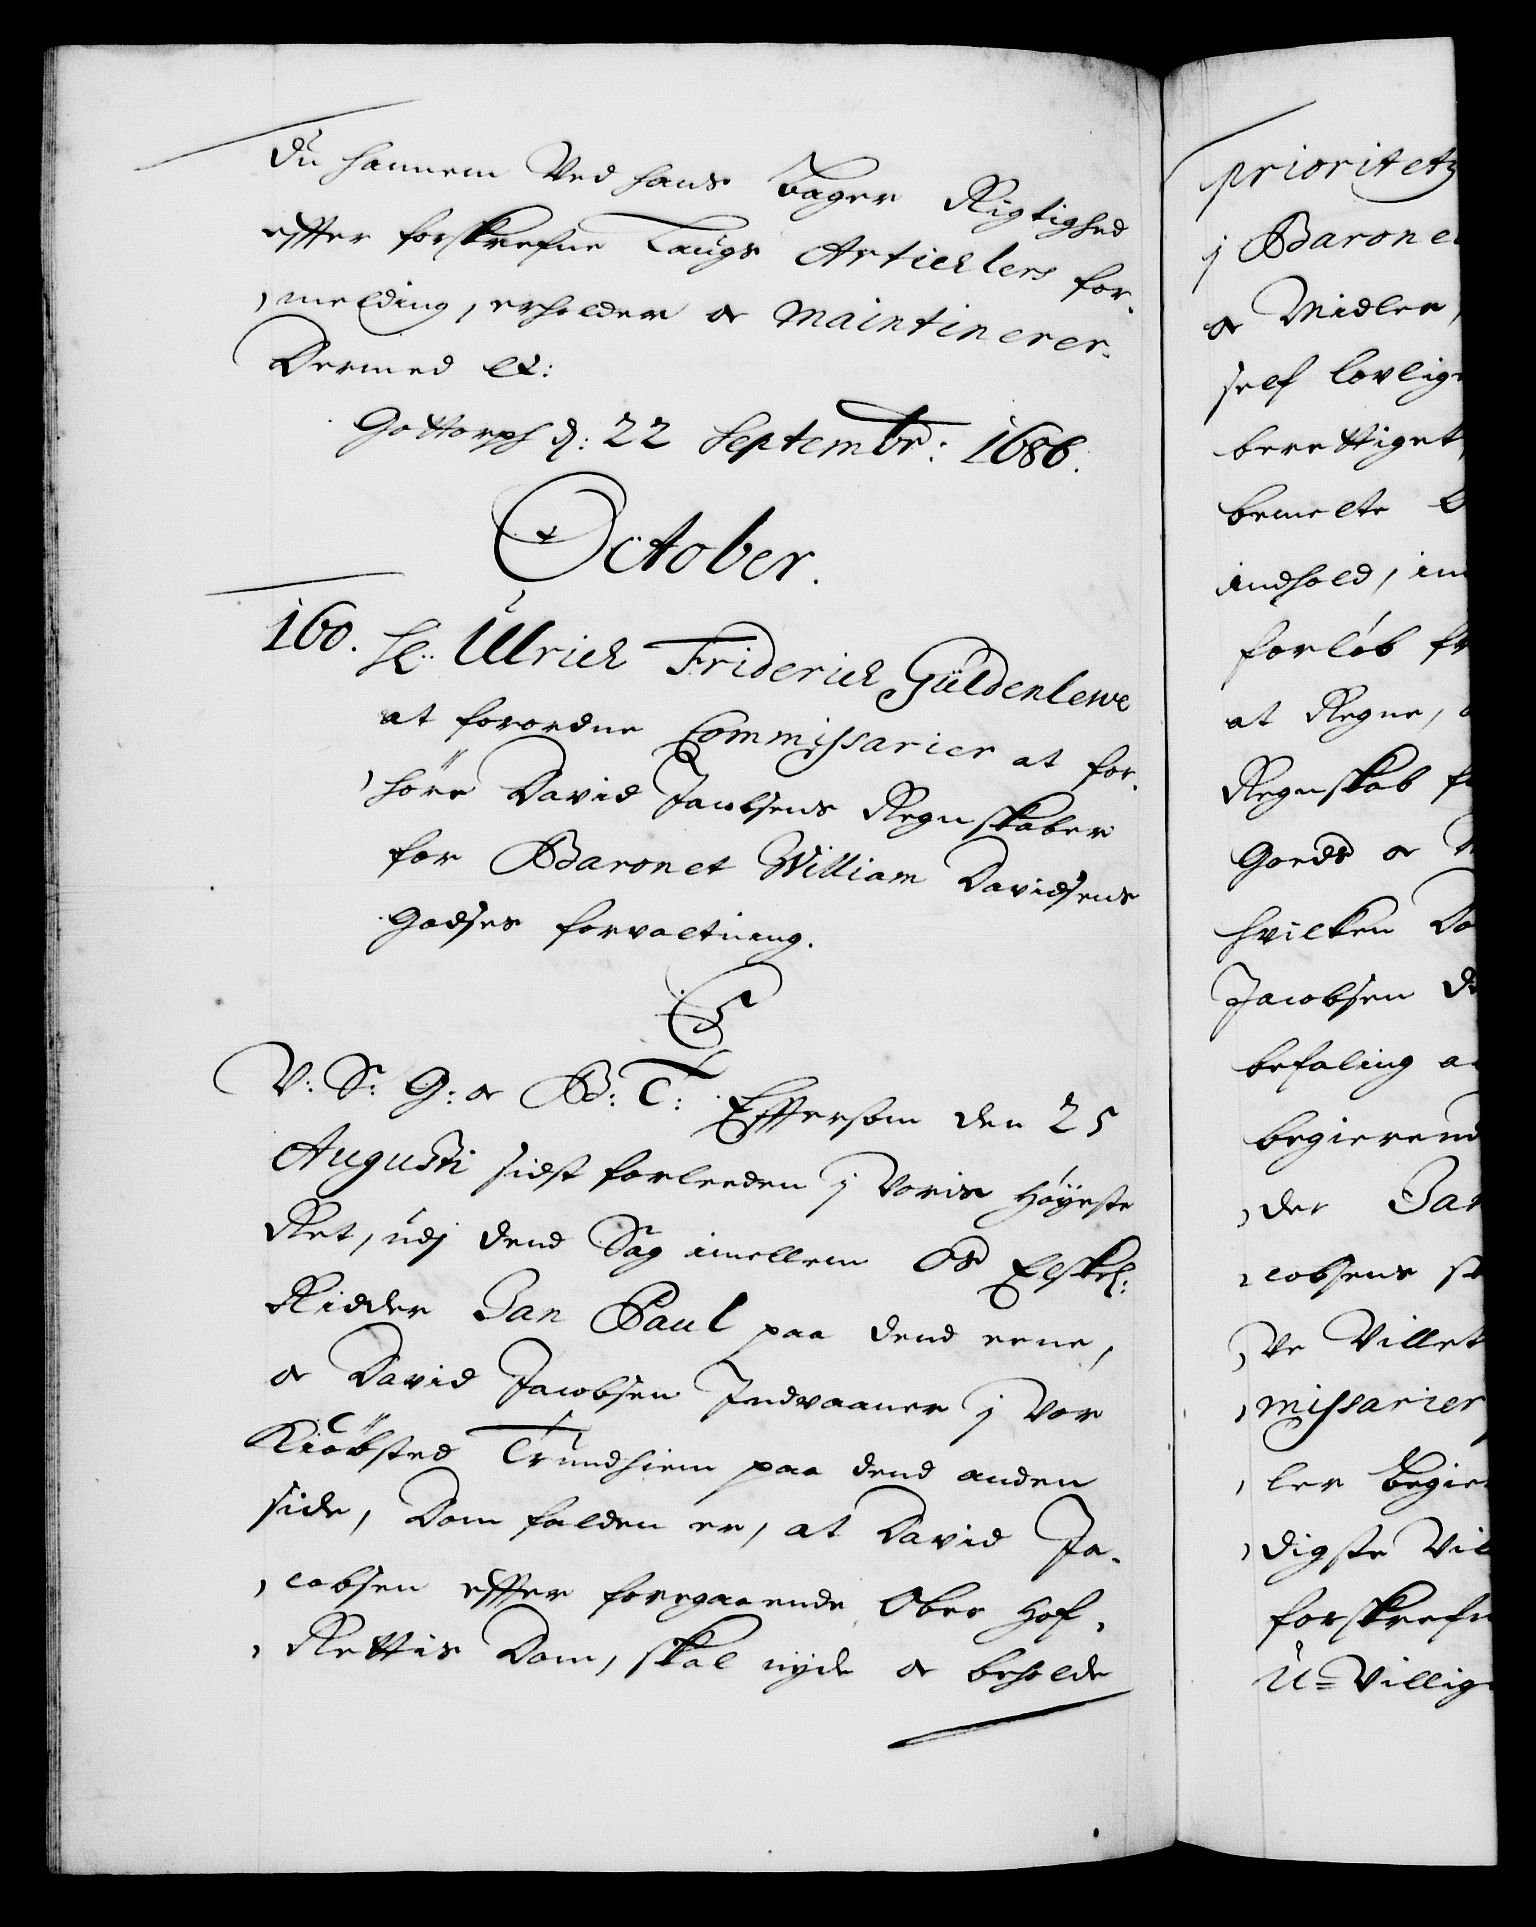 du hannem Ved hans Bager Rigtighed
effter forskrefne Laugs Articklers for-
melding, erholder og Maintinerer.
Dermed etc:
Gottorph d: 22 Septembr: 1686.
October.
160. Hr: Ulrich Friderich Güldenlewe
at forordne Commissarier at for-
höre David Jacobsens Regnskaber
for Baronet William Davidsens
Godses forvaltning.
C5
V: S: G: og B: T: Effterson den 25
Augusti sidst forleeden j Voris Høyeste
Ret, udj dend Sag imellem Os Elskel:
Ridder Jan Paul paa dend eene,
og David Jacobsen Indvaaner j Vor
Kiöbsted Trundhiem paa dend anden
side, Dom falden er, at David Ja-
cobsen effter foregaaende Ober Hof-
Rettis Dom, skal nyde og beholde
prioritetz
j Barone
og Midler,
self lovlig
berettiget,
bemelte
indhold,
forløb fr
at Regne,
Regnskab f
Goeds og
hvilken Da
Jacobsen
befaling
begierend
der Jan
cobsens
Ve Villet
missarier
ler begie
digste Vil
forskrefn
U-Villig